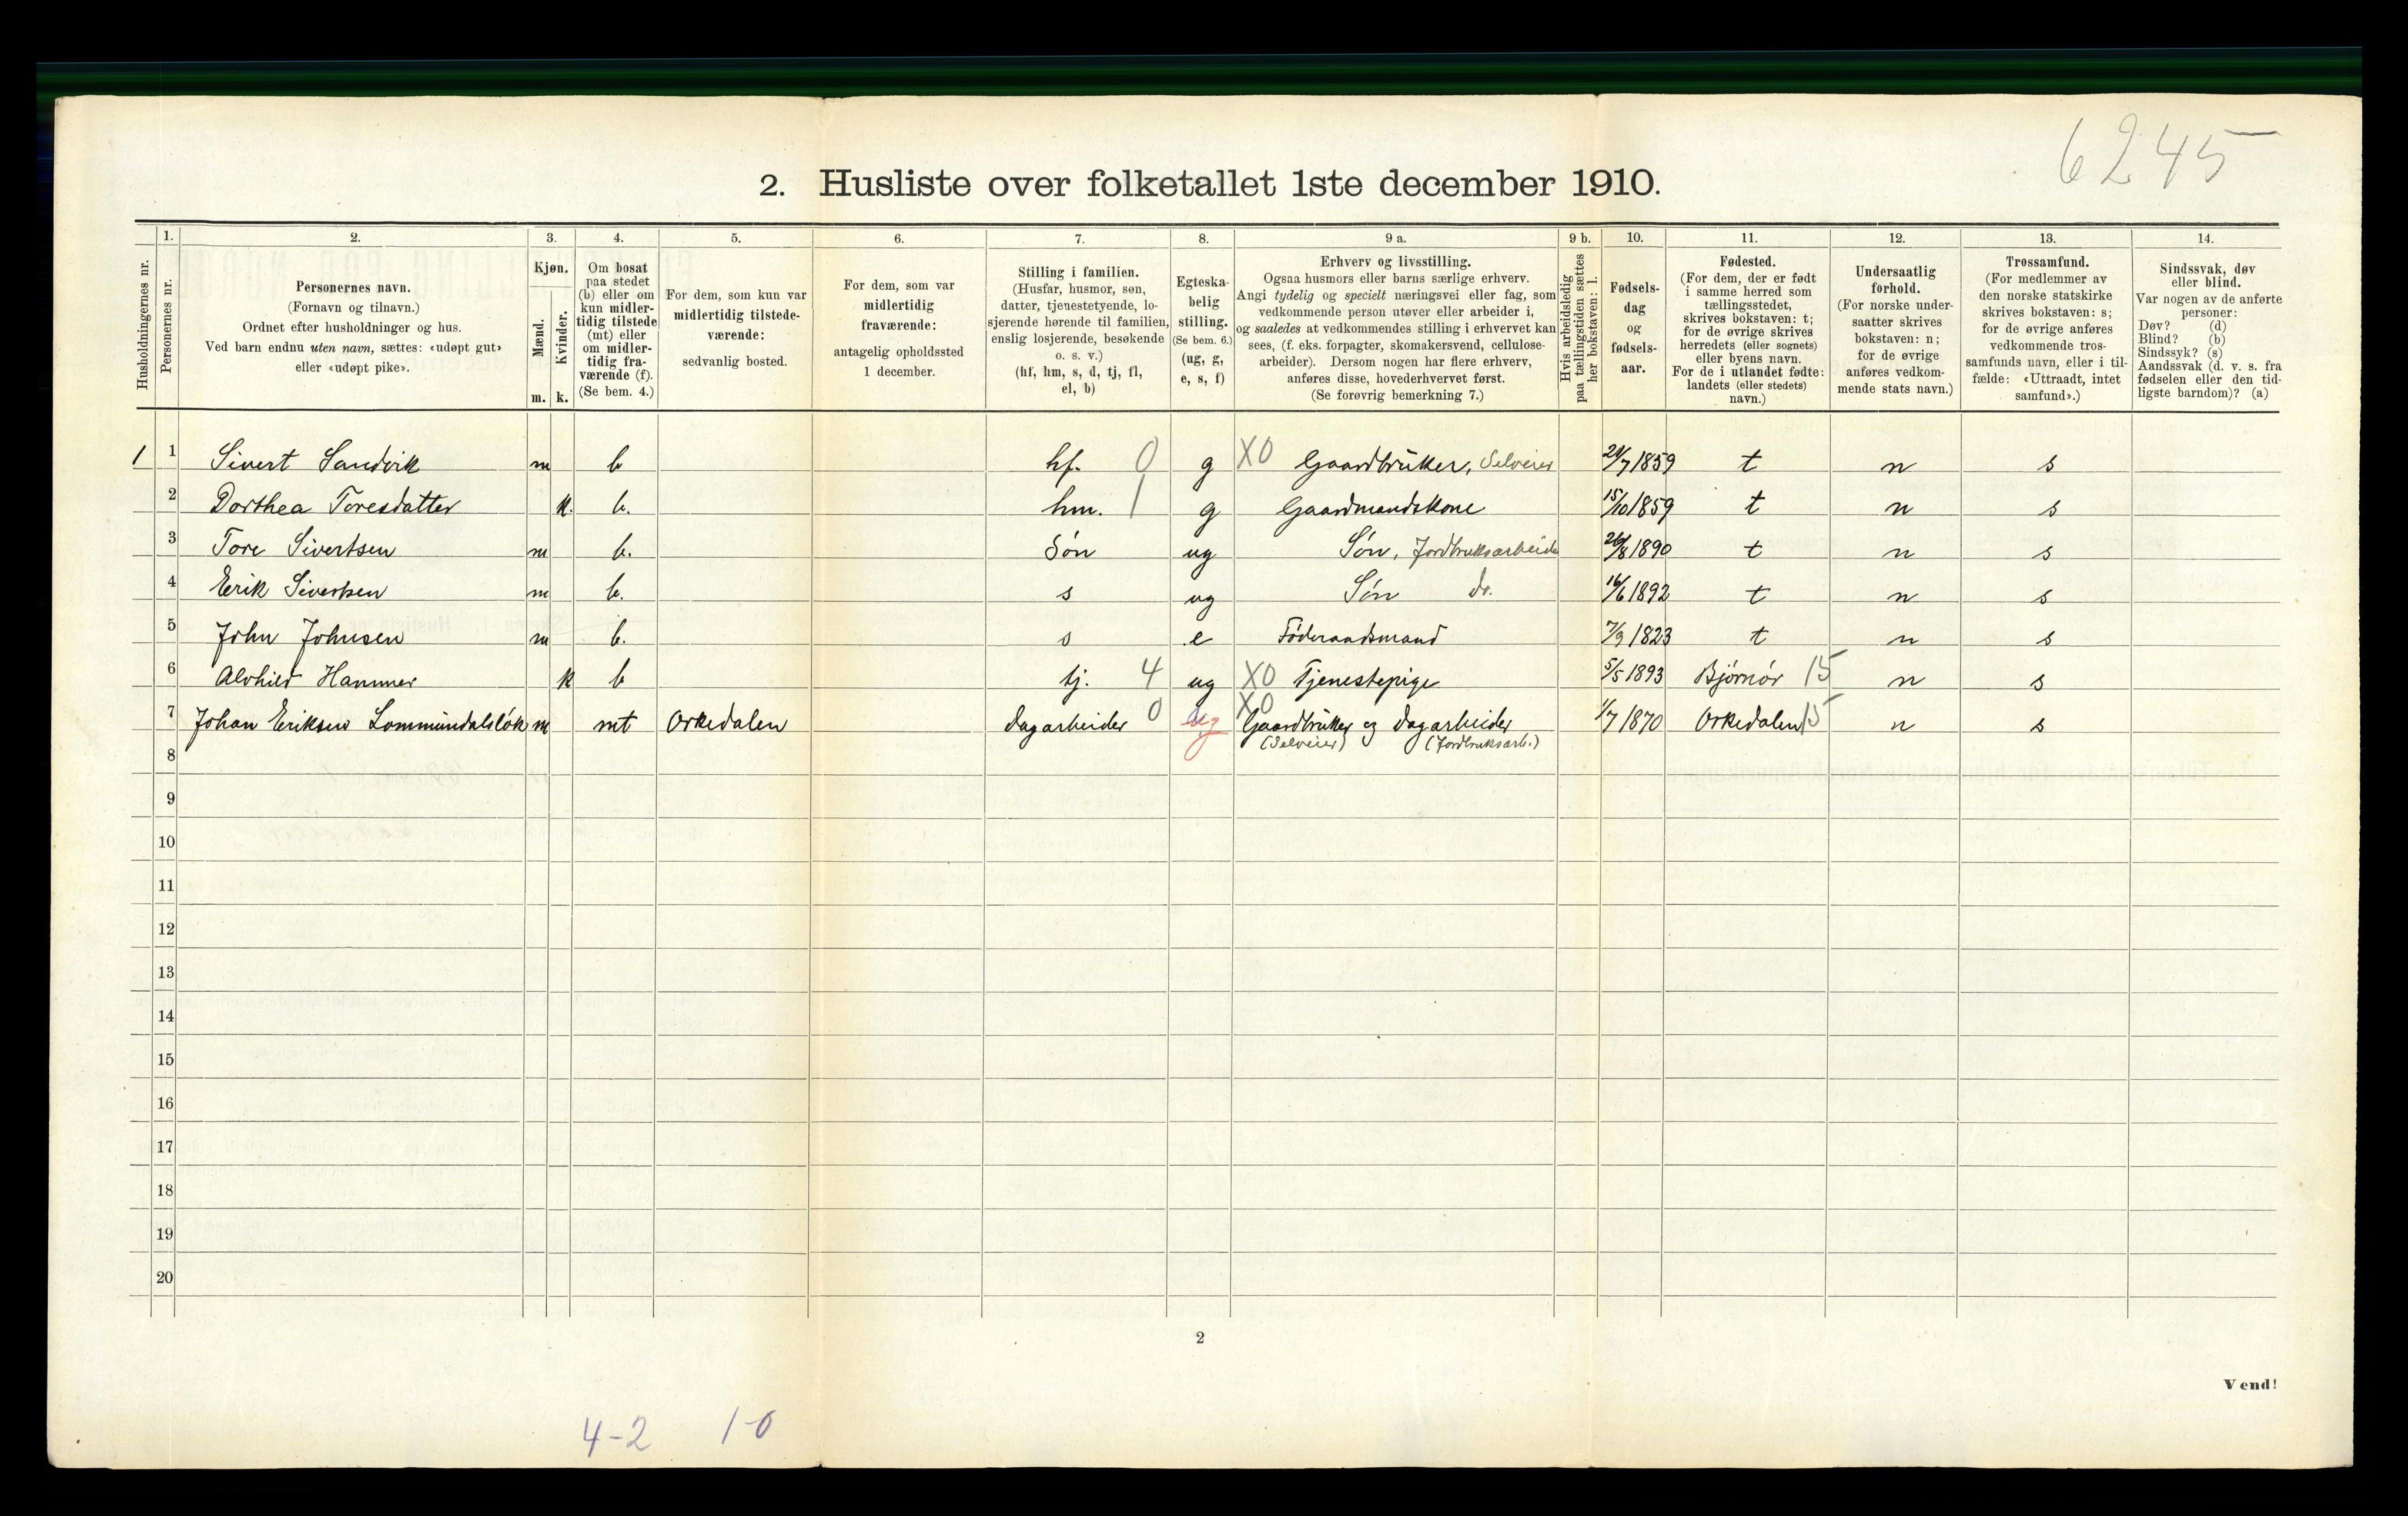 6245
2. Husliste over folketallet 1ste december 1910.
Husholdningernes nr.
1.
Personernes nr.
2.
Personernes navn.
(Fornavn og tilnavn.)
Ordnet efter husholdninger og hus.
Ved barn endnu uten navn, sættes: «udøpt gut»
eller «udøpt pike».
3.
Kjøn.
Mænd.
Kvinder.
m. k.
4.
Om bosat
paa stedet
(b) eller om
kun midler-
tidig tilstede
(mt) eller
om midler-
tidig fra-
værende (f).
(Se bem. 4.)
5.
For dem, som kun var
midlertidig tilstede-
værende:
sedvanlig bosted.
6.
For dem, som var
midlertidig
fraværende:
antagelig opholdssted
1 december.
7.
Stilling i familien.
(Husfar, husmor, søn,
datter, tjenestetyende, lo-
sjerende hørende til familien,
enslig losjerende, besøkende
o. s. v.)
(hf, hm, s, d, tj, fl,
el, b)
8.
Egteska-
belig
stilling.
(Se bem. 6.)
(ug, g,
e, s, f)
9 a.
Erhverv og livsstilling.
Ogsaa husmors eller barns særlige erhverv.
Angi tydelig og specielt næringsvei eller fag, som
vedkommende person utøver eller arbeider i,
og saaledes at vedkommendes stilling i erhvervet kan
sees, (f. eks. forpagter, skomakersvend, cellulose-
arbeider). Dersom nogen har flere erhverv,
anføres disse, hovederhvervet først.
(Se forøvrig bemerkning 7.)
9 b.
Hvis arbeidsledig
paa tællingstiden sættes
her bokstaven: l.
10.
Fødsels-
dag
og
fødsels-
aar.
11.
Fødested.
(For dem, der er født
i samme herred som
tællingsstedet,
skrives bokstaven: t;
for de øvrige skrives
herredets (eller sognets)
eller byens navn.
For de i utlandet fødte:
landets (eller stedets)
navn.)
12.
Undersaatlig
forhold.
(For norske under-
saatter skrives
bokstaven: n;
for de øvrige
anføres vedkom-
mende stats navn.)
13.
Trossamfund.
(For medlemmer av
den norske statskirke
skrives bokstaven: s;
for de øvrige anføres
vedkommende tros-
samfunds navn, eller i til-
fælde: «Uttraadt, intet
samfund».)
14.
Sindssvak, døv
eller blind.
Var nogen av de anførte
personer:
Døv? (d)
Blind? (b)
Sindssyk? (s)
Aandssvak (d. v. s. fra
fødselen eller den tid-
ligste barndom)? (a)
1 1 Sivert Sandvik m b hf. 0 g X0 Gaardbruker, Selveier 7 1859 t n s
2 Dorthea Toresdatter k. b. hm. 1 g Gaardmandskone 15/10 1859 t n s
3 Tore Sivertsen m b. Søn ug Søn, Jordbruksarbeide 26/8 1890 t n s
4 Erik Sivertsen m b. s ug Søn do. 16/6 1892 t n s
5 John Johnsen m b. s e Føderaadsmand 7/9 1823 t n s
6 Alvhild Hammer k b tj. 4 ug X0 Tjenestepige 5/5 1893 Bjørnør 15 n s
7 Johan Eriksen Lommundalsløk m mt Orkedalen dagarbeider 0 ug X0 Gaardbruker og dagarbeider 1/7 1870 Orkedalen 15 n s
(Selveier) (Jordbruksarb.)
8
9
10
11
12
13
14
15
16
17
18
19
20
2
Vend!
4-2 1-0